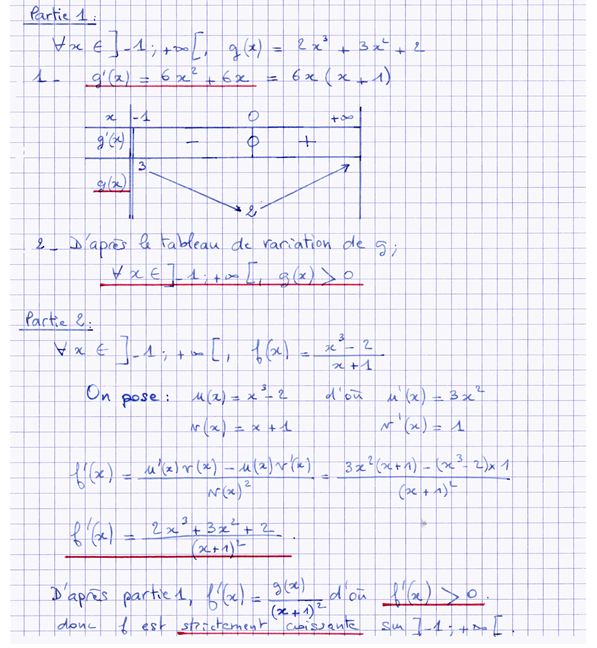 Partie 1:
∀x ∈ ]-1; +∞[, g(x) = 2x³ + 3x² + 2
1- g'(x) = 6x² + 6x = 6x(x+1)
x -1 0 +∞
g'(x) - 0 +
g(x) 3 2
2- D'après le tableau de variation de g;
∀x ∈ ]-1; +∞[, g(x) > 0
Partie 2:
∀x ∈ ]-1; +∞[, f(x) = (x³-2)/(x+1)
On pose: u(x) = x³-2 d'où u'(x) = 3x²
v(x) = x+1 v'(x) = 1
f'(x) = (u'(x)v(x) - u(x)v'(x))/v(x)² = (3x²(x+1) - (x³-2)×1)/(x+1)²
f'(x) = (2x³+3x²+2)/(x+1)².
D'après partie 1, f'(x) = g(x)/(x+1)² d'où f'(x) > 0.
donc f est strictement croissante sur ]-1; +∞[.